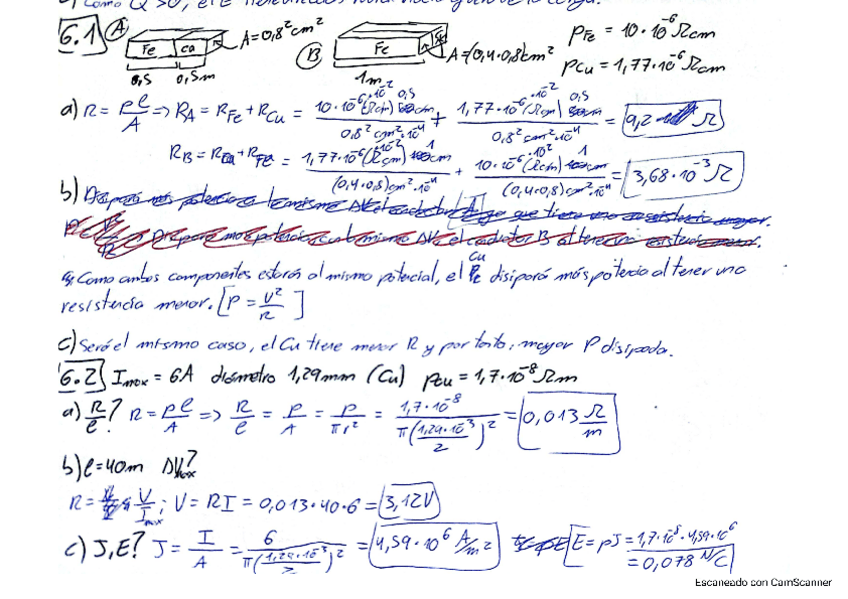 6.1 A Fe Cu A=0,8² cm² B Fe A=(0,4·0,8)cm² ρFe = 10·10⁻⁶ Ωcm
0,5 0,5m 1m ρCu = 1,77·10⁻⁶ Ωcm
a) R = ρℓ/A => R_A = R_Fe + R_Cu = 10·10⁻⁶(Ωcm)·10⁻² 0,5 / 0,8² cm²·10⁻⁴ + 1,77·10⁻⁶(Ωcm)·10⁻² 0,5 / 0,8² cm²·10⁻⁴ = 9,2 Ω
R_B = = 1,77·10⁻⁶(Ωcm)·10⁻² 1 / (0,4·0,8)cm²·10⁻⁴ + 10·10⁻⁶·10⁻²(Ωcm) 1 / (0,4·0,8)cm²·10⁻⁴ = 3,68·10⁻³ Ω
b)
Como ambos componentes estarán al mismo potencial, el Cu disipará más potencia al tener una
resistencia menor. [P = V²/R ]
c) Será el mismo caso, el Cu tiene menor R y por tanto, mayor P disipada.
6.2 Imax = 6A diámetro 1,29mm (Cu) ρCu = 1,7·10⁻⁸ Ωm
a) R/ℓ? R = ρℓ/A => R/ℓ = ρ/A = ρ/πr² = 1,7·10⁻⁸ / π(1,29·10⁻³/2)² = 0,013 Ω/m
b) ℓ=40m ΔVmax?
R = V/Imax ; V = RI = 0,013·40·6 = 3,12V
c) J,E? J = I/A = 6 / π(1,29·10⁻³/2)² = 4,59·10⁶ A/m² E = ρJ = 1,7·10⁻⁸·4,59·10⁶
= 0,078 N/C
Escaneado con CamScanner